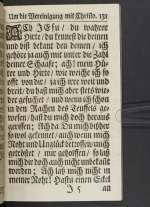 Um die Vereinigung mit Christo. 131
ACh JEsu / du wahrer
Hirte / du kennest die deinen
und bist bekant den deinen / ich
gehöre ja auch mit unter die Zahl
deiner Schaafe; ach! mein Hü-
ter und Hirte / wie weiche ich so
offt von dir / ja ich irre weit und
breit / du hast mich aber stets wie-
der gesuchet / und wenn ich schon
in den Rachen des Teuffels ge-
wesen / hast du mich doch heraus
gerissen: Ach da du mich bißher
so wol geleitet / und auch wenn mich
Noht und Unglück betroffen / mich
getröstet / mir geholffen / folgt
mich die doch auch nicht unbekant
werden; Ach laß mich nicht in
meiner Noht! Hastu einen Eckel
J 5 an